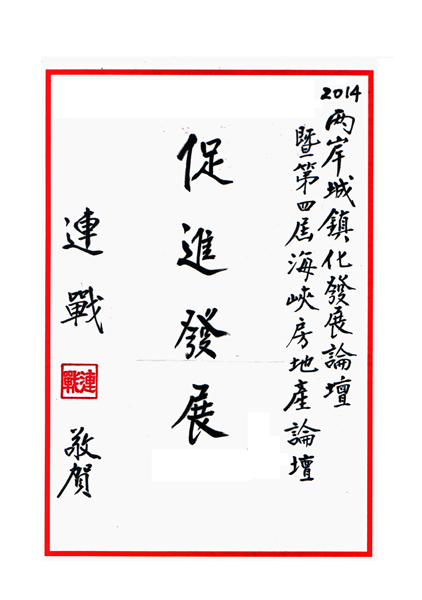 2014两岸城鎮化發展論壇
暨第四屆海峽房地產論壇
促進發展
連戰
連戰
敬賀